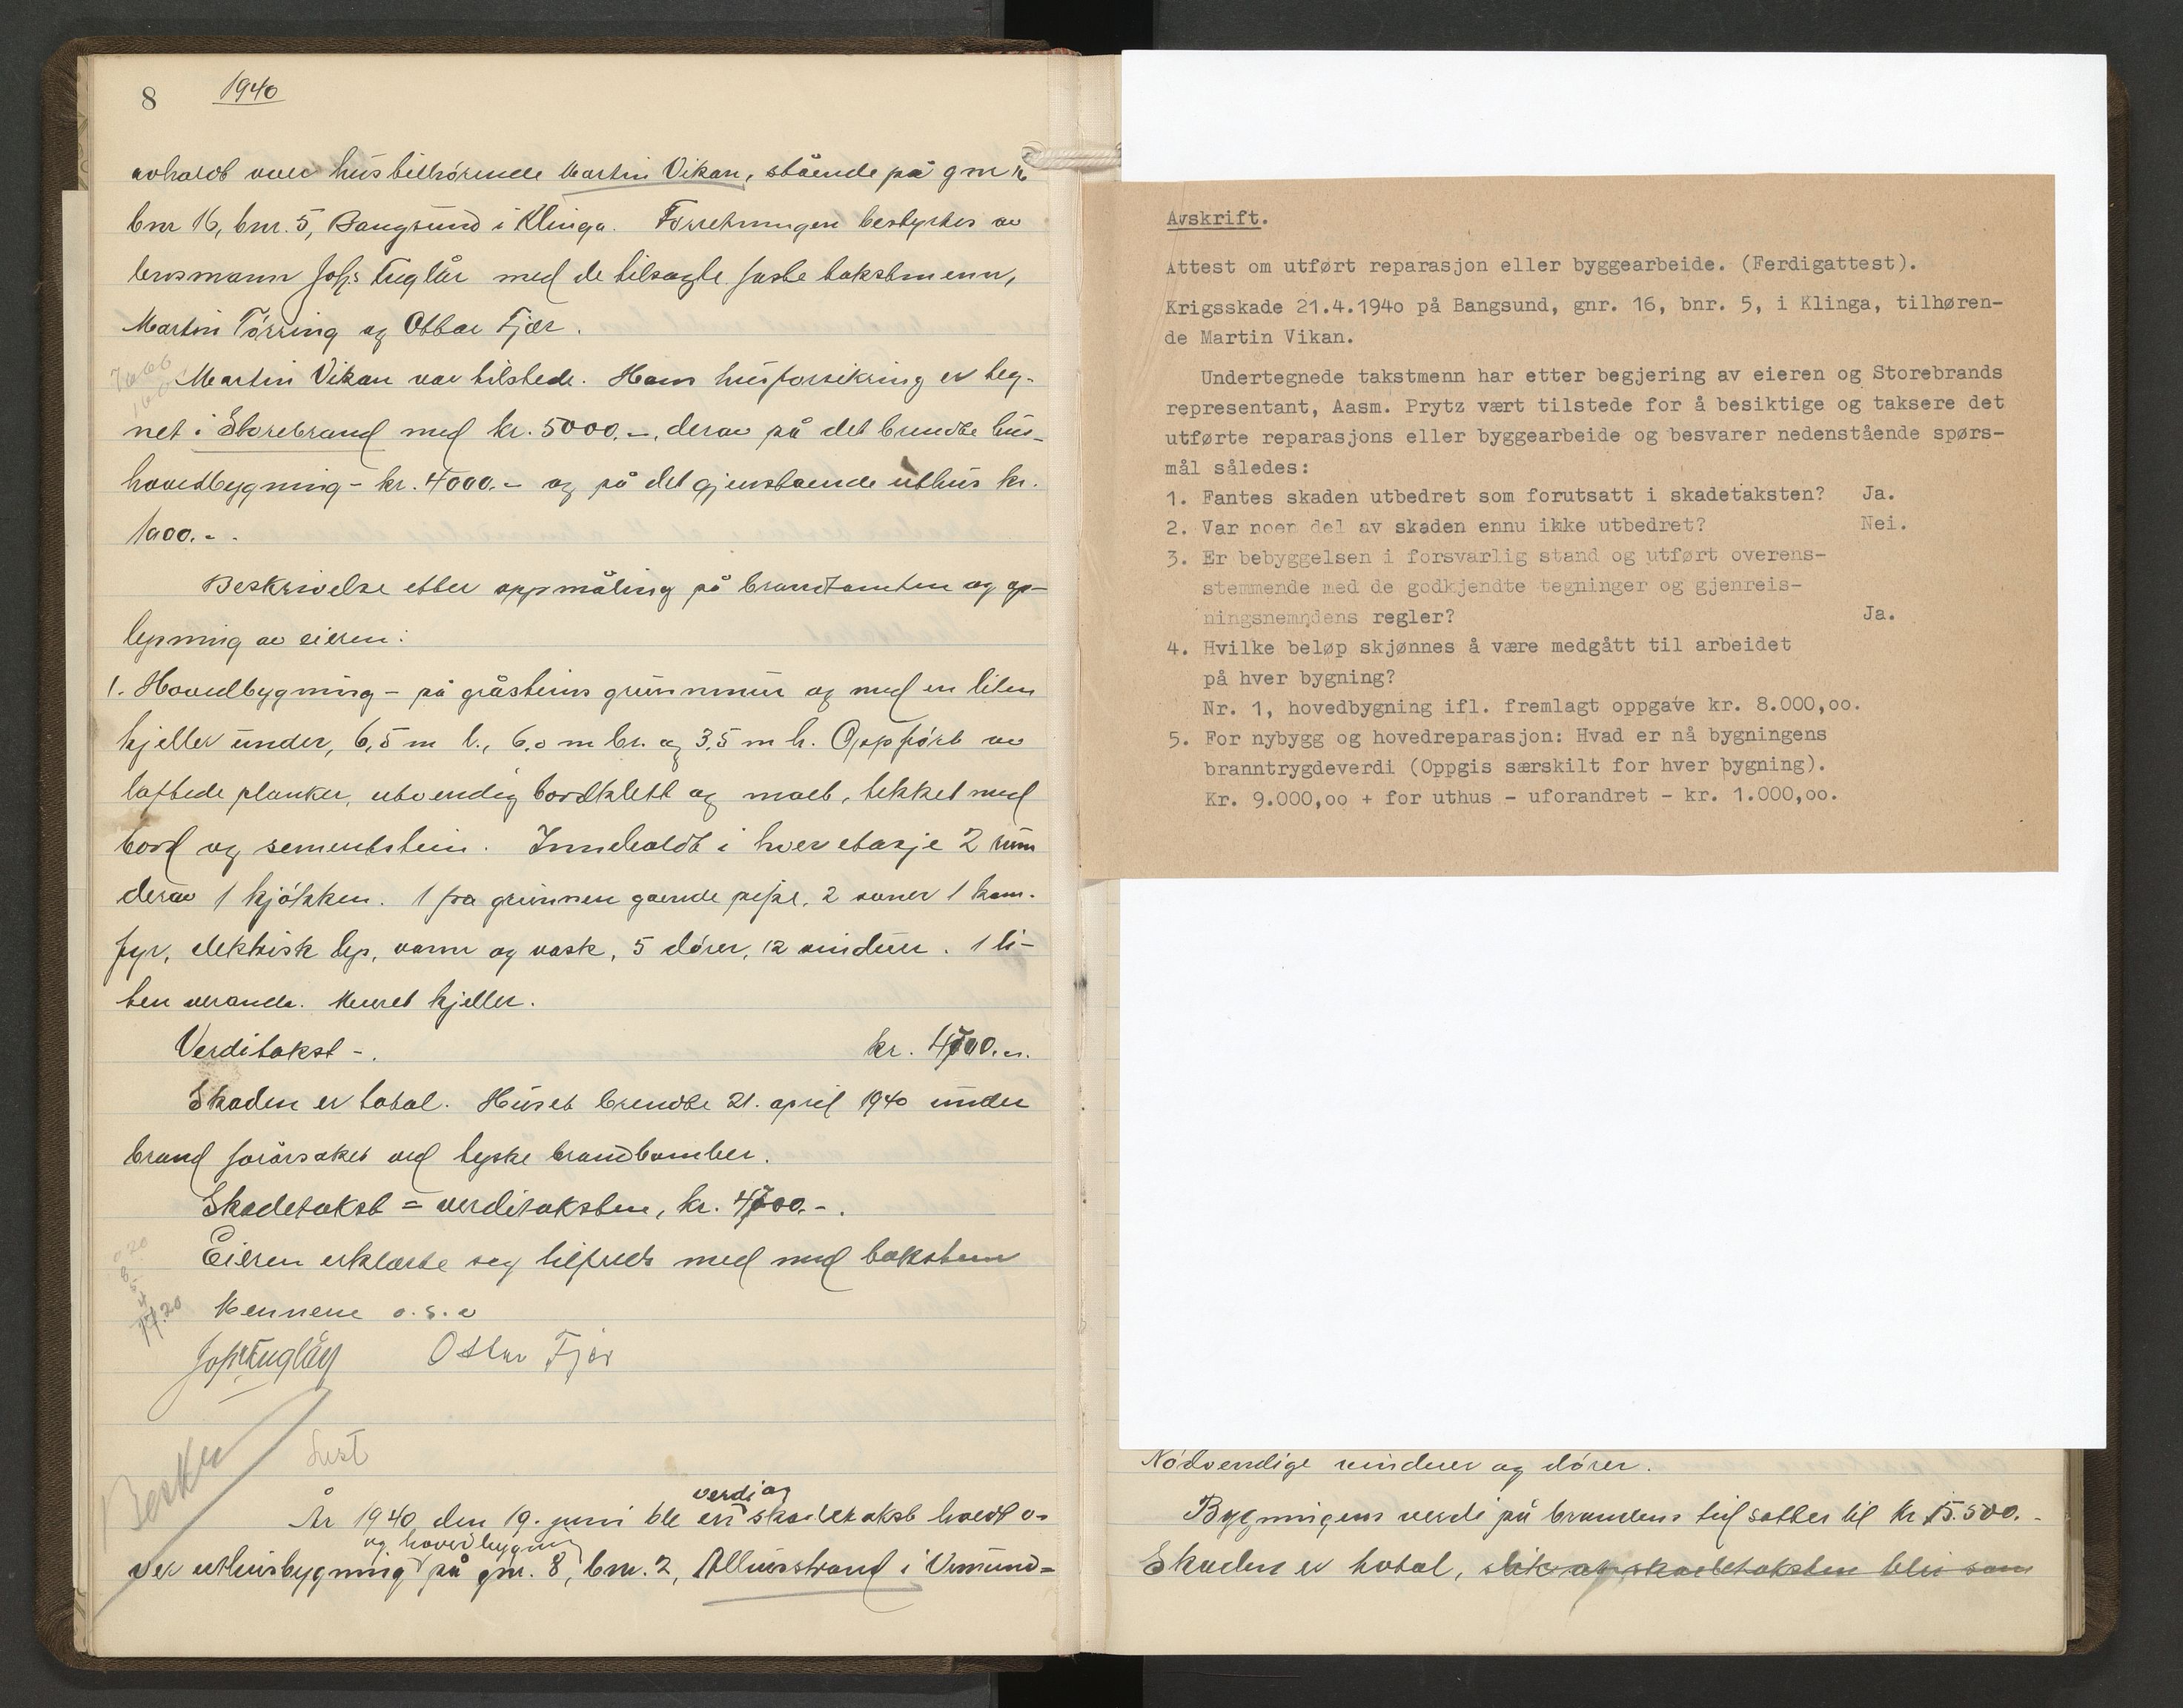 8 1940
avholdt over hus tilhørende Martin Vikan, stående på gnr
bnr 16, bnr. 5, Bangsund i Klinga. Forretningen bestyrtes av
lensmann Johs Fuglår med de tilsagte faste takstmenn,
Martin Tørring og Ottar Fjær.
Martin Vikan var tilstede. Hans husforsikring er teg-
net i Storebrand med kr. 5000.-, derav på det brendte hus-
hovedbygning - kr. 4000.- og på det gjenstående uthus kr.
1000.-.
Beskrivelse etter oppmåling på brandtomten og op-
lysning av eieren:
1. Hovedbygning - på gråsteins grunnmur og med en liten
kjeller under, 6,5 m l., 6,0 m br. og 3,5 m h. Oppført av
laftede planker, utvendig bordklett og malt, tekket med
bord og sementstein. Inneholdt i hver etasje 2 rum
derav 1 kjøkken. 1 fra grunnen gående pipe, 2 ovner 1 kom-
fyr, elektrisk lys, vann og vask, 5 dører, 12 vinduer. 1 li-
ten veranda. Muret kjeller.
Verditakst -. kr. 4700.-.
Skaden er total. Huset brendte 21. april 1940 under
brand forårsaket ved tyske brandbomber.
Skadetakst = verditaksten, kr. 4700.-.
Eieren erklærte seg tilfreds med med taksten
Mennene o.s.v
Johs Fuglår Ottar Fjær
År 1940 den 19. juni ble en verdi og skadetakst holdt o-
ver uthusbygning og hovedbygning på gnr. 8, bnr. 2, Altinsstrand i Vemund-
Avskrift.
Attest om utført reparasjon eller byggearbeide. (Ferdigattest).
Krigsskade 21.4.1940 på Bangsund, gnr. 16, bnr. 5, i Klinga, tilhøren-
de Martin Vikan.
Undertegnede takstmenn har etter begjering av eieren og Storebrands
representant, Aasm. Prytz vært tilstede for å besiktige og taksere det
utførte reparasjons eller byggearbeide og besvarer nedenstående spørs-
mål således:
1. Fantes skaden utbedret som forutsatt i skadetaksten? Ja.
2. Var noen del av skaden ennu ikke utbedret? Nei.
3. Er bebyggelsen i forsvarlig stand og utført overens-
stemmende med de godkjendte tegninger og gjenreis-
ningsnemndens regler? Ja.
4. Hvilke beløp skjønnes å være medgått til arbeidet
på hver bygning?
Nr. 1, hovedbygning ifl. fremlagt oppgave kr. 8.000,oo.
5. For nybygg og hovedreparasjon: Hvad er nå bygningens
branntrygdeverdi (Oppgis særskilt for hver bygning).
Kr. 9.000,oo + for uthus - uforandret - kr. 1.000,oo.
Nødvendige vinduer og dører.
Bygningens verdi på brandens tid settes til kr 15.500.-
Skaden er total, slik at skadetaksten blir som